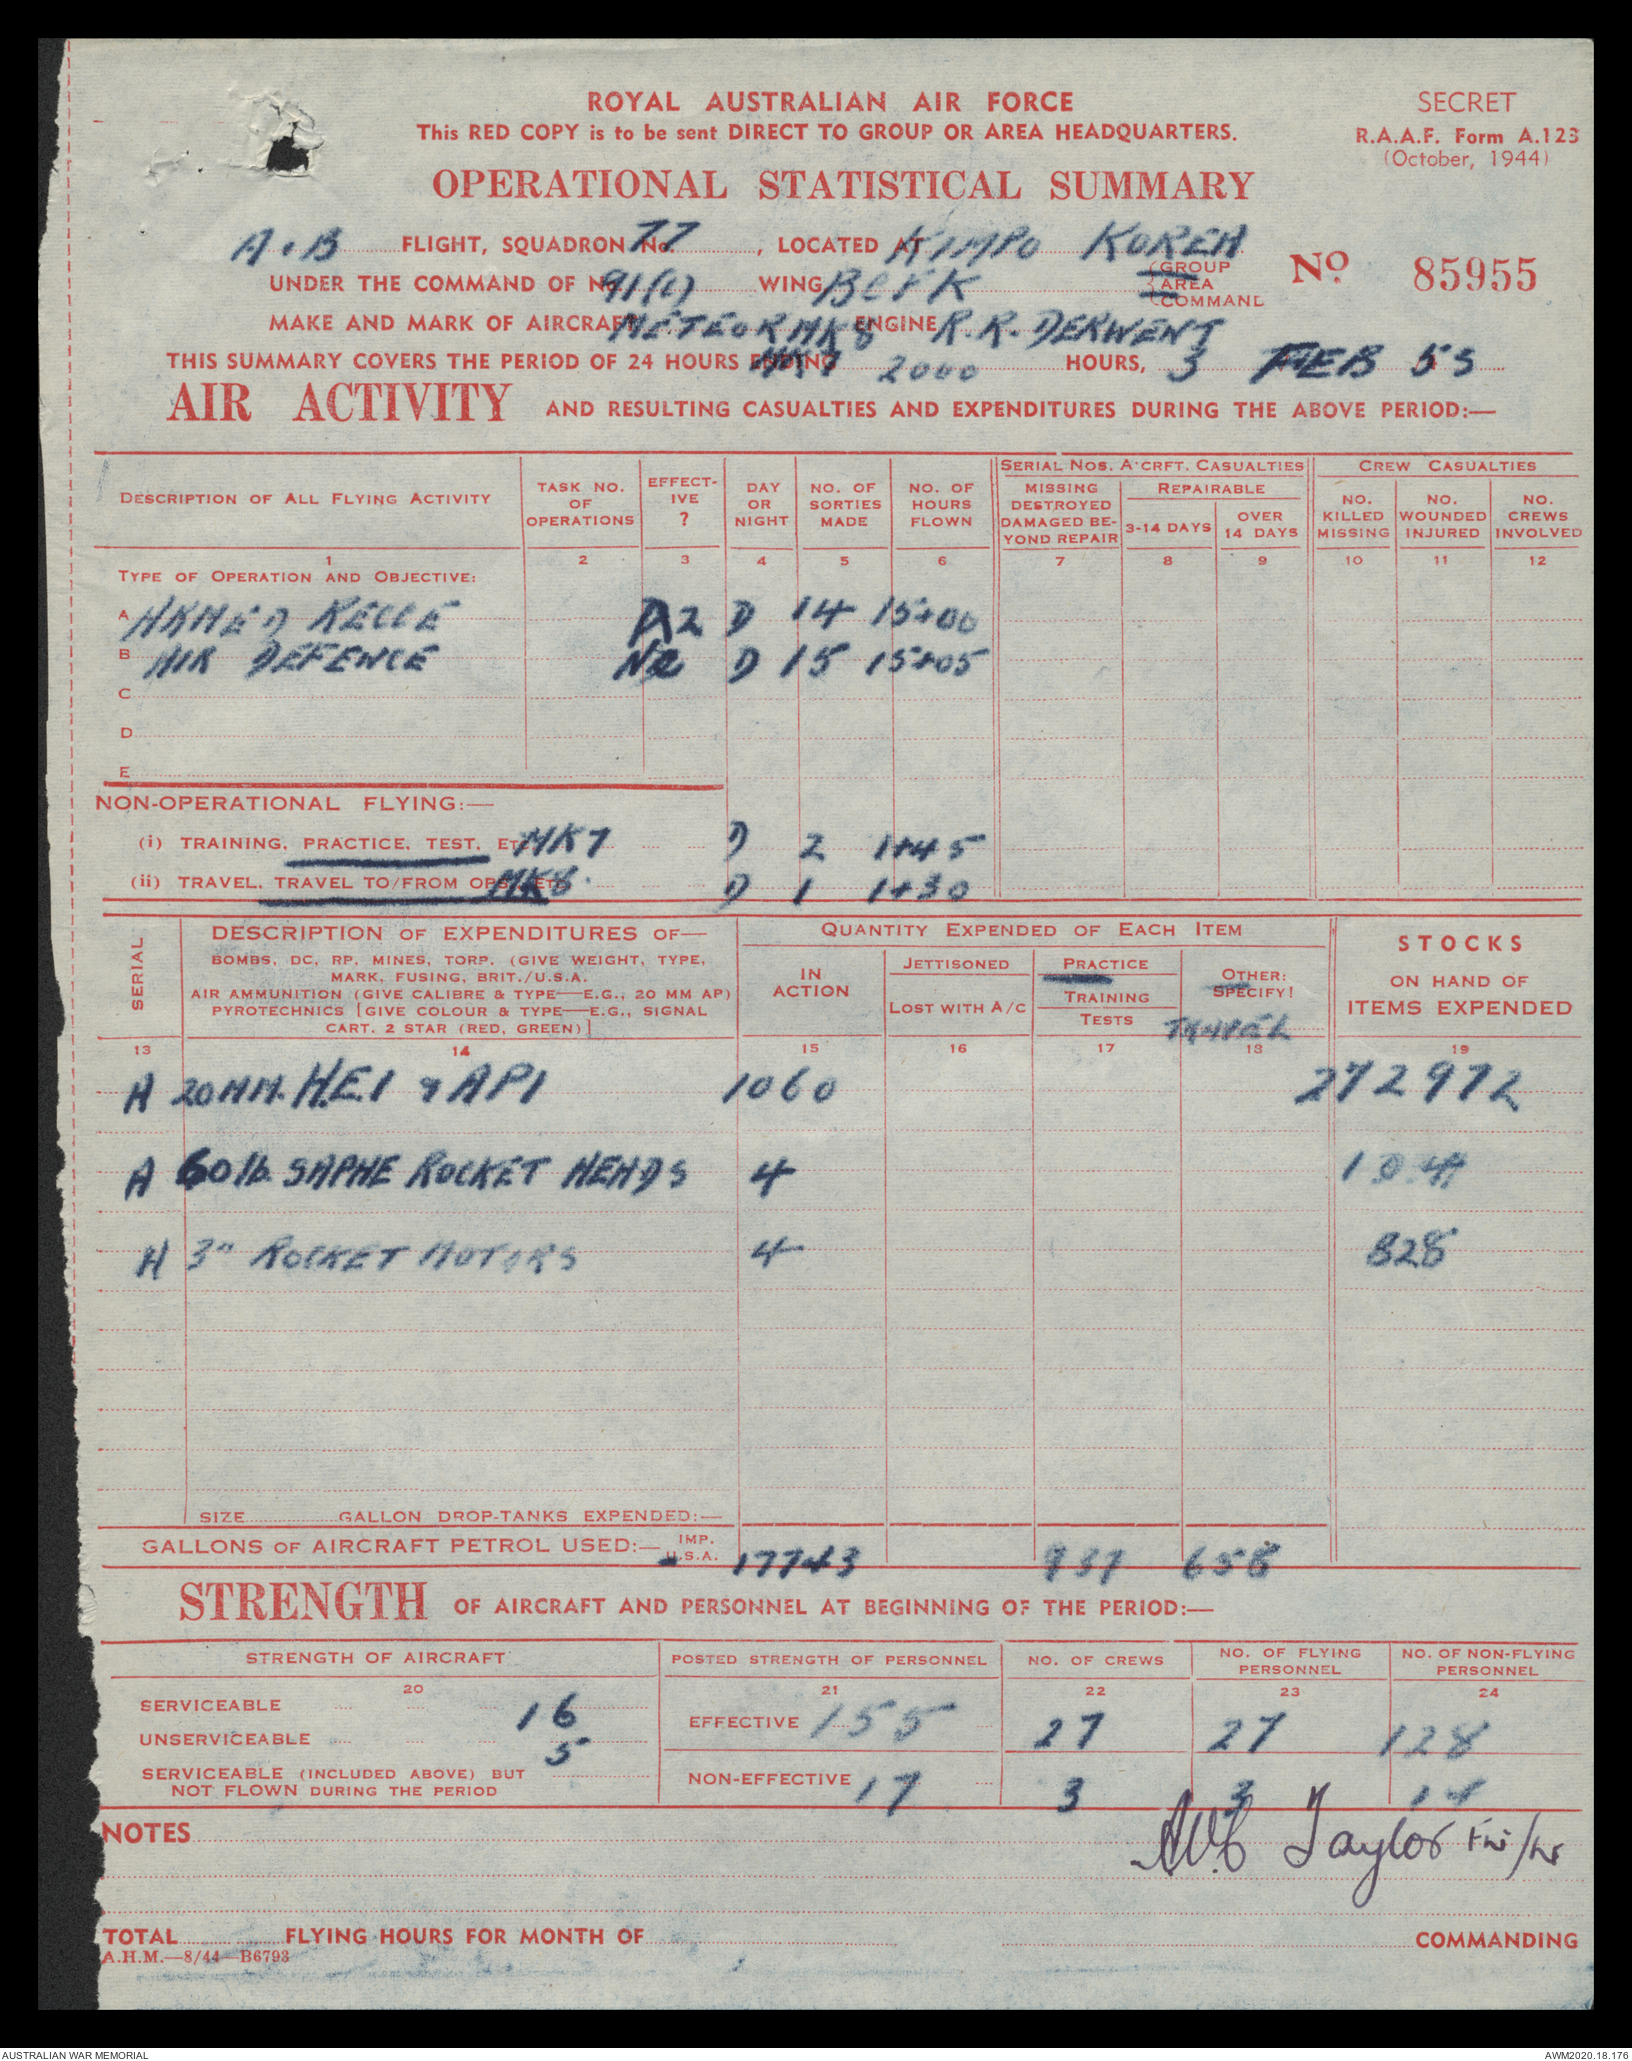 ROYAL AUSTRALIAN AIR FORCE
SECRET
This RED COPY is to be sent DIRECT TO GROUP OR AREA HEADQUARTERS.
R.A.A.F. Form A.123
(October, 1944)
OPERATIONAL STATISTICAL SUMMARY
A + B FLIGHT, SQUADRON No. 77, LOCATED AT KIMPO KOREA
UNDER THE COMMAND OF No. 91(C) WING BCFK (GROUP AREA COMMAND No 85955
MAKE AND MARK OF AIRCRAFT METEOR MK8 ENGINE R.R. DERWENT
THIS SUMMARY COVERS THE PERIOD OF 24 HOURS ENDING MK7 2000 HOURS, 3 FEB 53
AIR ACTIVITY AND RESULTING CASUALTIES AND EXPENDITURES DURING THE ABOVE PERIOD:—
DESCRIPTION OF ALL FLYING ACTIVITY
TASK NO. OF OPERATIONS
EFFECT-IVE ?
DAY OR NIGHT
NO. OF SORTIES MADE
NO. OF HOURS FLOWN
SERIAL NOS. A'CRFT. CASUALTIES
MISSING DESTROYED DAMAGED BE-YOND REPAIR
REPAIRABLE
3-14 DAYS
OVER 14 DAYS
CREW CASUALTIES
NO. KILLED MISSING
NO. WOUNDED INJURED
NO. CREWS INVOLVED
1 2 3 4 5 6 7 8 9 10 11 12
TYPE OF OPERATION AND OBJECTIVE:
A ARMED RECCE A2 D 14 15+00
B AIR DEFENCE NE D 15 15+05
C
D
E
NON-OPERATIONAL FLYING:—
(i) TRAINING, PRACTICE, TEST, ETC MK7 D 2 1+45
(ii) TRAVEL, TRAVEL TO/FROM OPS, ETC MK8 D 1 1+30
SERIAL
DESCRIPTION OF EXPENDITURES OF—
BOMBS, DC, RP, MINES, TORP. (GIVE WEIGHT, TYPE,
MARK, FUSING, BRIT./U.S.A.
AIR AMMUNITION (GIVE CALIBRE & TYPE—E.G., 20 MM AP)
PYROTECHNICS [GIVE COLOUR & TYPE—E.G., SIGNAL
CART. 2 STAR (RED, GREEN)]
QUANTITY EXPENDED OF EACH ITEM
IN ACTION
JETTISONED
LOST WITH A/C
PRACTICE
TRAINING
TESTS
OTHER: SPECIFY!
TRAVEL
STOCKS
ON HAND OF
ITEMS EXPENDED
13 14 15 16 17 18 19
A 20 MM. H.E.I & API 1060 272972
A 60 lb. SAPHE ROCKET HEADS 4 104
A 3" ROCKET MOTORS 4 828
SIZE GALLON DROP-TANKS EXPENDED:—
GALLONS OF AIRCRAFT PETROL USED:— IMP. U.S.A. 17743 937 658
STRENGTH OF AIRCRAFT AND PERSONNEL AT BEGINNING OF THE PERIOD:—
STRENGTH OF AIRCRAFT
POSTED STRENGTH OF PERSONNEL
NO. OF CREWS
NO. OF FLYING PERSONNEL
NO. OF NON-FLYING PERSONNEL
20 21 22 23 24
SERVICEABLE 16
EFFECTIVE 155 27 27 128
UNSERVICEABLE 5
SERVICEABLE (INCLUDED ABOVE) BUT
NOT FLOWN DURING THE PERIOD
NON-EFFECTIVE 17 3 3 14
NOTES
Taylor
TOTAL FLYING HOURS FOR MONTH OF COMMANDING
A.H.M.—8/44—B6793
AUSTRALIAN WAR MEMORIAL
AWM2020.18.176